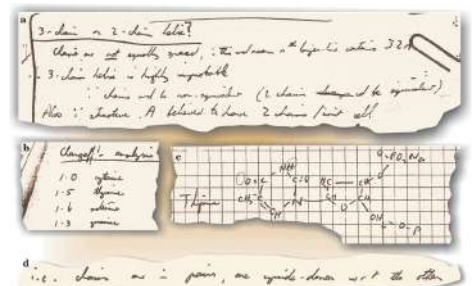 a
3-chain or 2-chain helix?
Chains are not equally spaced, ∴ the
contains 32
∴ 3-chain helix is highly improbable
∵ chains wd be non-equivalent (2 chains wd be equivalent)
Also ∵ structure A believed to have 2 chains / unit cell
b
Chargaff's analysis
1·0 cytosine
1·5 thymine
1·6 adenine
1·3 guanine
c
Thymine
NH
CH
O
N
OH
d
i.e. chains are in pairs, one upside-down w.r.t. the other